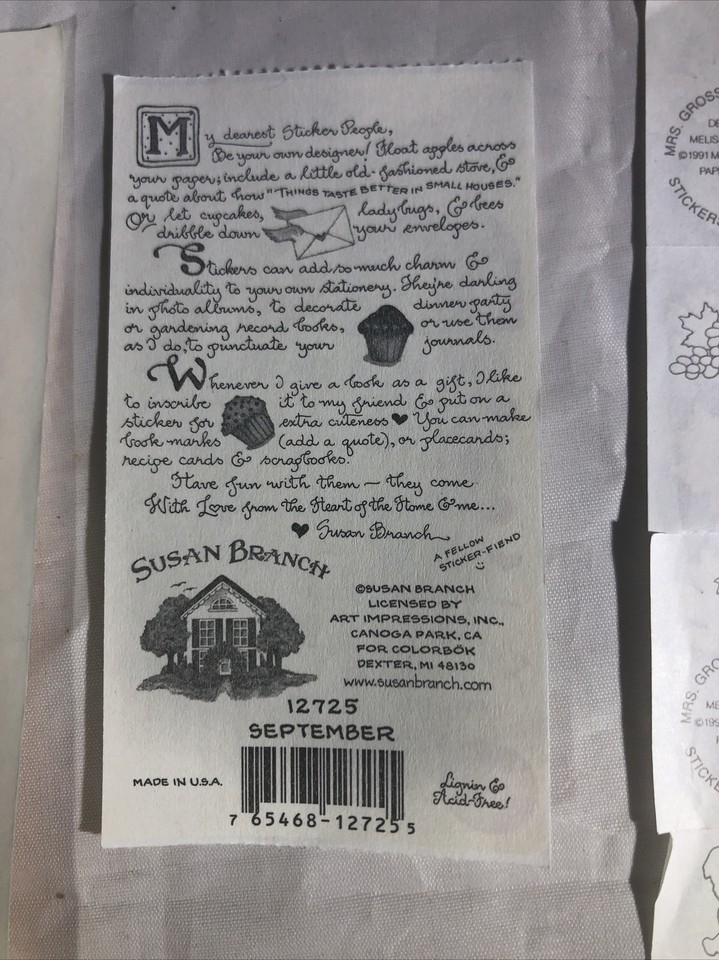 My dearest Sticker People,
Be your own designer! Float apples across
your paper; include a little old-fashioned stove, &
a quote about how "THINGS TASTE BETTER IN SMALL HOUSES."
Or let cupcakes, ladybugs, & bees
dribble down your envelopes.
Stickers can add so much charm &
individuality to your own stationery. They're darling
in photo albums, to decorate dinner party
or gardening record books, or use them
as I do, to punctuate your journals.
Whenever I give a book as a gift, I like
to inscribe it to my friend & put on a
sticker for extra cuteness ♥ You can make
book marks (add a quote), or placecards;
recipe cards & scrapbooks.
Have fun with them — they come
With Love from the Heart of the Home & me...
♥ Susan Branch
A FELLOW
STICKER-FIEND
SUSAN BRANCH
©SUSAN BRANCH
LICENSED BY
ART IMPRESSIONS, INC.,
CANOGA PARK, CA
FOR COLORBÖK
DEXTER, MI 48130
www.susanbranch.com
12725
SEPTEMBER
MADE IN U.S.A.
Lignin &
Acid-Free!
7 65468-12725 5
MRS. GROSS
©1991 M
PAP
STICKERS
MRS. GRO
ME
©199
P
STICKE